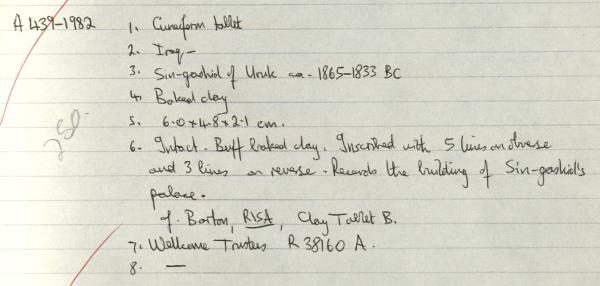 A 439-1982 1. Cuneiform tablet
2. Iraq -
3. Sin-gashid of Uruk ca. 1865-1833 BC
4. Baked clay
5. 6.0 x 4.8 x 2.1 cm.
6. Intact. Buff baked clay. Inscribed with 5 lines on obverse
and 3 lines on reverse. Records the building of Sin-gashid's
palace.
cf. Barton, RISA, Clay Tablet B.
7. Wellcome Trustees R 38160 A.
8. —